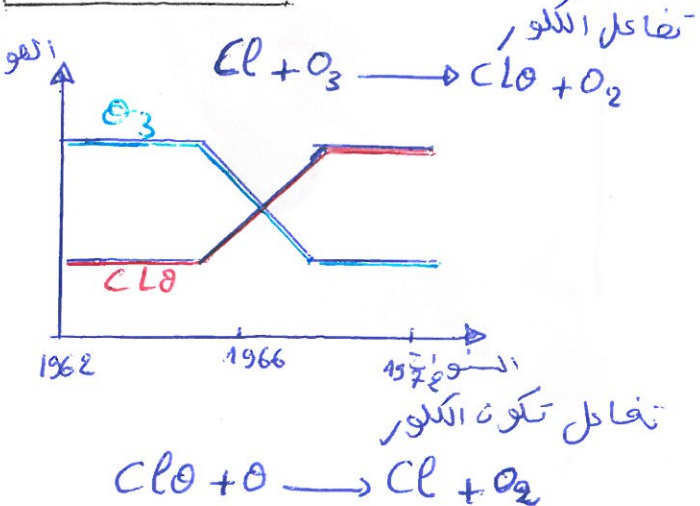 تفاعل الكلور
Cl + O₃ → ClO + O₂
O₃
ClO
1962 1966
السنوات
تفاعل تكون الكلور
ClO + O → Cl + O₂